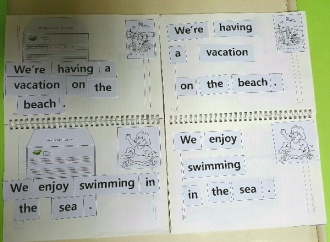 We're having a
vacation on the
beach.
We're having
a vacation
on the beach.
We enjoy swimming in
the sea.
We enjoy
swimming
in the sea.